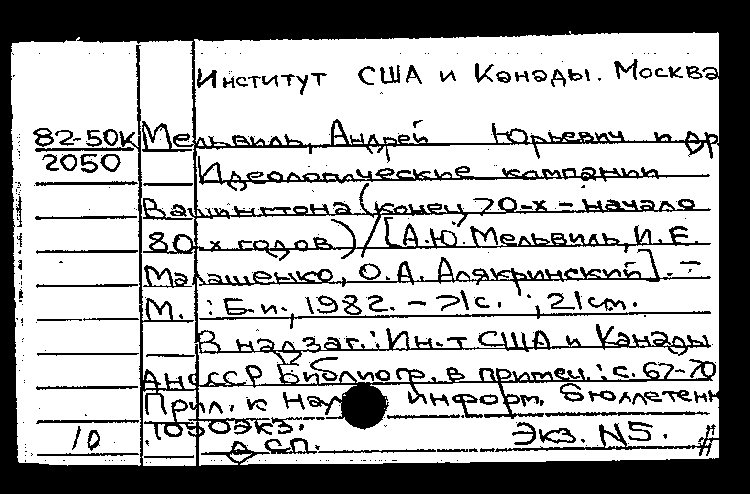 Институт США и Канады. Москва
82-50к Мельвиль, Андрей Юрьевич и др
2050 Идеологические кампании
Вашингтона (конец 70-х - начало
80-х годов) / [А.Ю. Мельвиль, И.Е.
Малашенко, О.А. Алякринский]. -
М. : Б.и., 1982. - 71с. ; 21см.
В надзаг.: Ин-т США и Канады
АН СССР Библиогр. в примеч.: с. 67-70
Прил. к Науч информ. бюллетен
1050экз.
10 ДСП. Экз. N5.